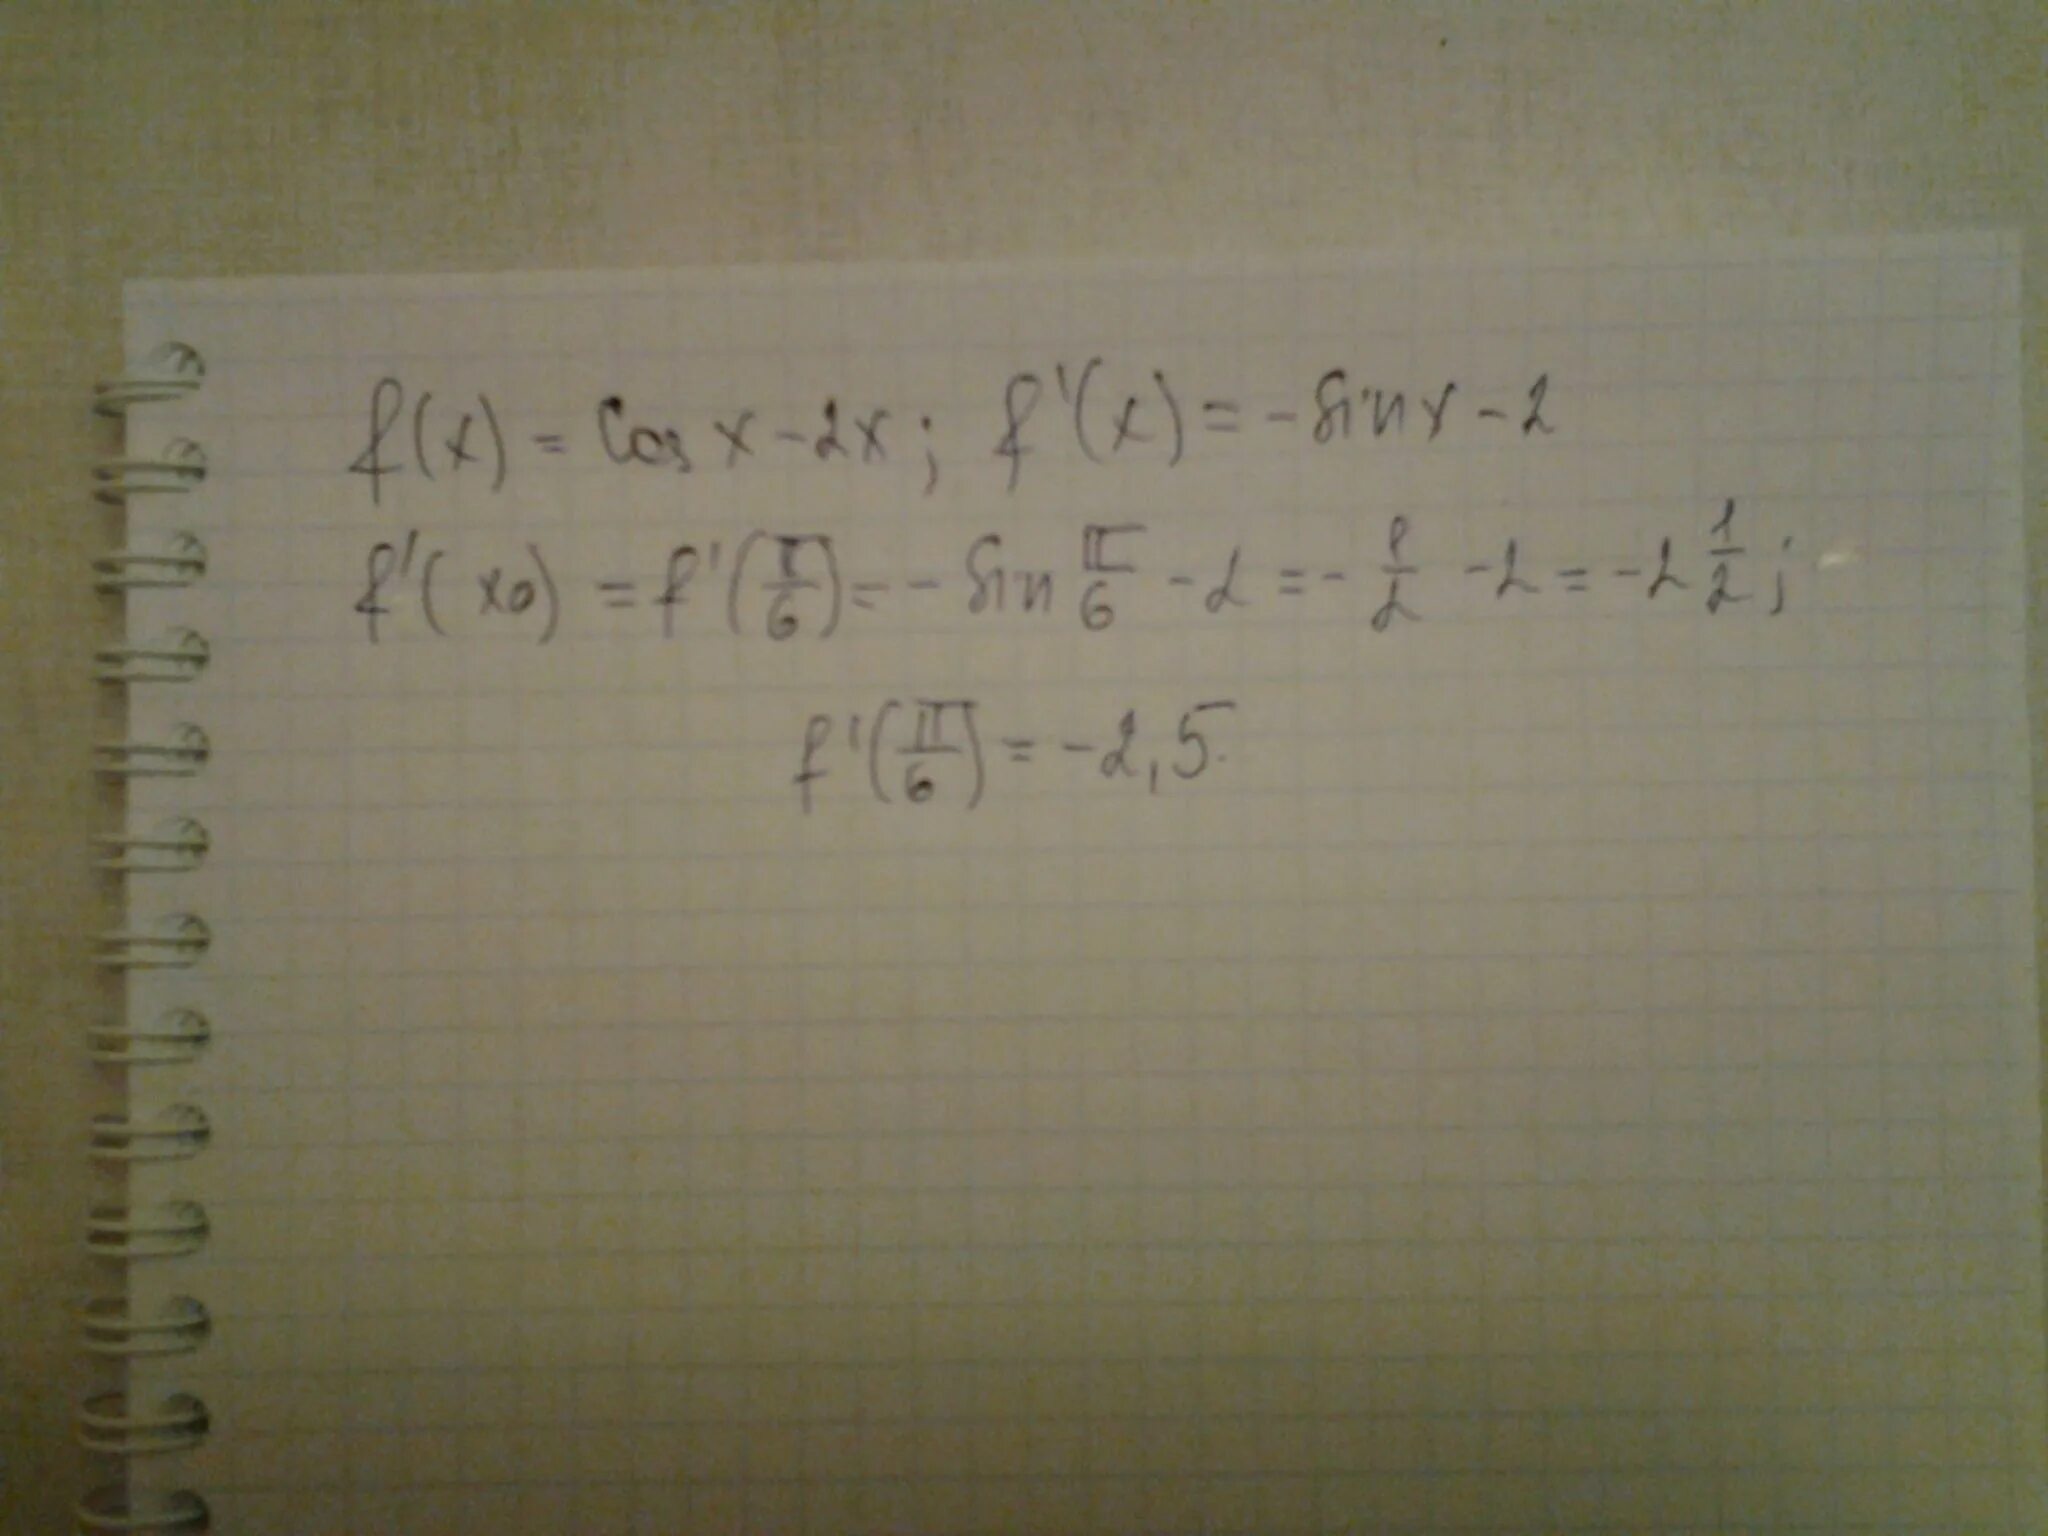 f(x) = Cos x - 2x; f'(x) = -sin x - 2
f'(x₀) = f'(π/6) = - sin π/6 - 2 = - 1/2 - 2 = -2 1/2;
f'(π/6) = -2,5.